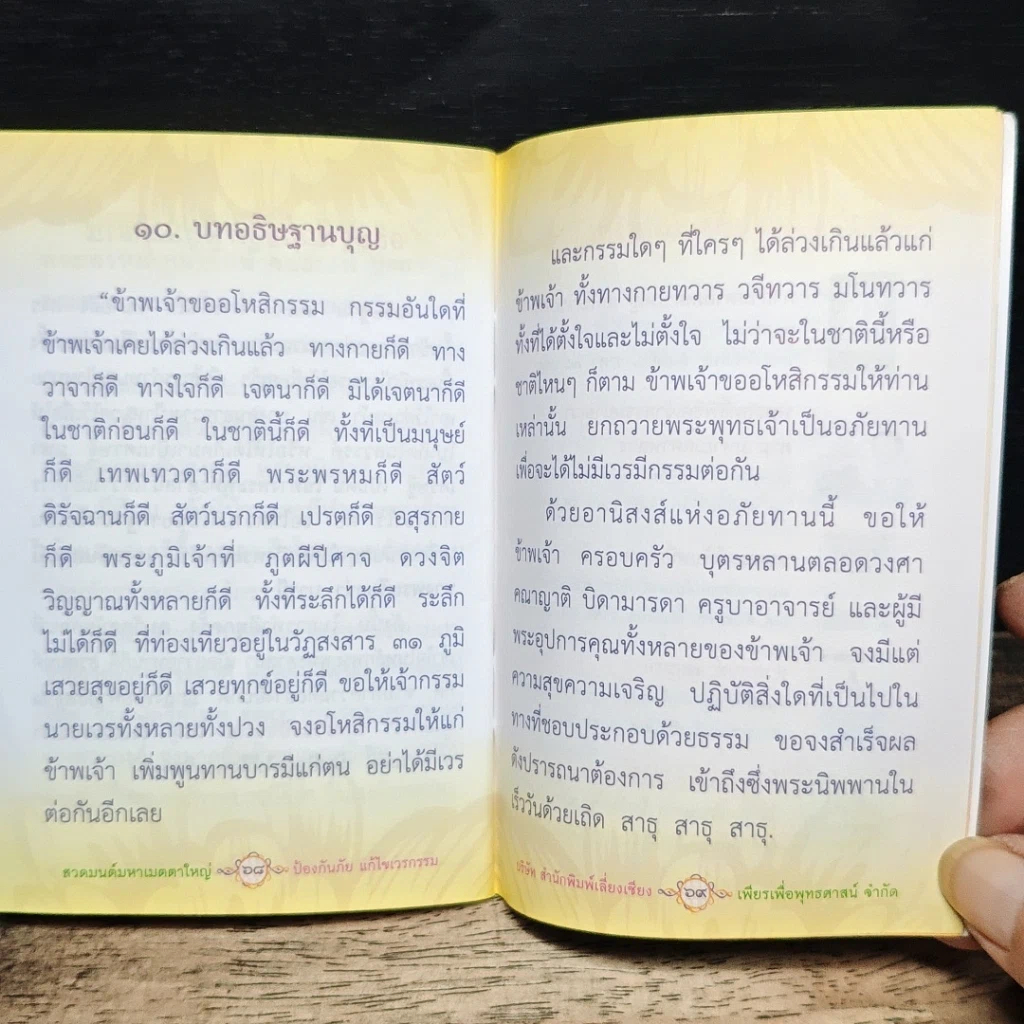 ๑๐. บทอธิษฐานบุญ
“ข้าพเจ้าขออโหสิกรรม กรรมอันใดที่
ข้าพเจ้าเคยได้ล่วงเกินแล้ว ทางกายก็ดี ทาง
วาจาก็ดี ทางใจก็ดี เจตนาก็ดี มิได้เจตนาก็ดี
ในชาติก่อนก็ดี ในชาตินี้ก็ดี ทั้งที่เป็นมนุษย์
ก็ดี เทพเทวดาก็ดี พระพรหมก็ดี สัตว์
ดิรัจฉานก็ดี สัตว์นรกก็ดี เปรตก็ดี อสุรกาย
ก็ดี พระภูมิเจ้าที่ ภูตผีปีศาจ ดวงจิต
วิญญาณทั้งหลายก็ดี ทั้งที่ระลึกได้ก็ดี ระลึก
ไม่ได้ก็ดี ที่ท่องเที่ยวอยู่ในวัฏสงสาร ๓๑ ภูมิ
เสวยสุขอยู่ก็ดี เสวยทุกข์อยู่ก็ดี ขอให้เจ้ากรรม
นายเวรทั้งหลายทั้งปวง จงอโหสิกรรมให้แก่
ข้าพเจ้า เพิ่มพูนทานบารมีแก่ตน อย่าได้มีเวร
ต่อกันอีกเลย
สวดมนต์มหาเมตตาใหญ่ ๖๘ ป้องกันภัย แก้ไขเวรกรรม
และกรรมใดๆ ที่ใครๆ ได้ล่วงเกินแล้วแก่
ข้าพเจ้า ทั้งทางกายทวาร วจีทวาร มโนทวาร
ทั้งที่ได้ตั้งใจและไม่ตั้งใจ ไม่ว่าจะในชาตินี้หรือ
ชาติไหนๆ ก็ตาม ข้าพเจ้าขออโหสิกรรมให้ท่าน
เหล่านั้น ยกถวายพระพุทธเจ้าเป็นอภัยทาน
เพื่อจะได้ไม่มีเวรมีกรรมต่อกัน
ด้วยอานิสงส์แห่งอภัยทานนี้ ขอให้
ข้าพเจ้า ครอบครัว บุตรหลานตลอดวงศา
คณาญาติ บิดามารดา ครูบาอาจารย์ และผู้มี
พระอุปการคุณทั้งหลายของข้าพเจ้า จงมีแต่
ความสุขความเจริญ ปฏิบัติสิ่งใดที่เป็นไปใน
ทางที่ชอบประกอบด้วยธรรม ขอจงสำเร็จผล
ดังปรารถนาต้องการ เข้าถึงซึ่งพระนิพพานใน
เร็ววันด้วยเถิด สาธุ สาธุ สาธุ.
บริษัท สำนักพิมพ์เลี่ยงเชียง ๖๙ เพียรเพื่อพุทธศาสน์ จำกัด